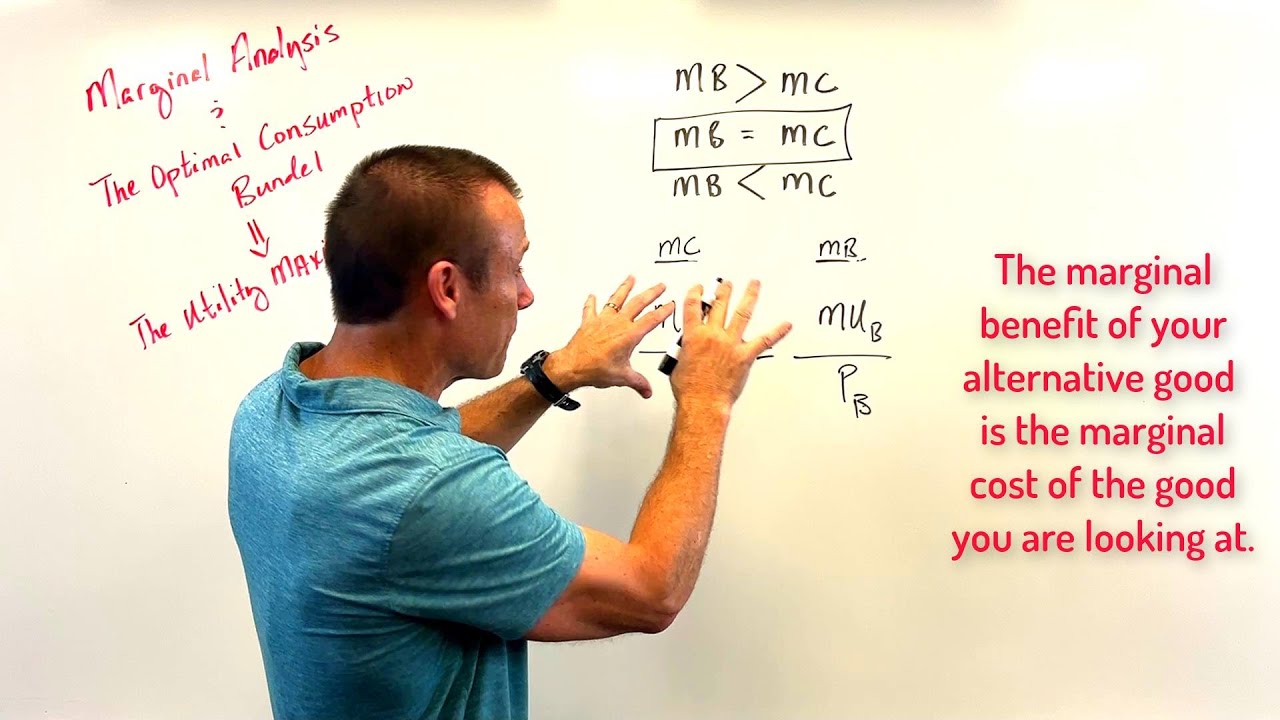 Marginal Analysis
:
The Optimal Consumption
Bundel
⇓
The Utility MAxi
MB > MC
MB = MC
MB < MC
MC
MB
M
=
MU_B
P_B
The marginal
benefit of your
alternative good
is the marginal
cost of the good
you are looking at.